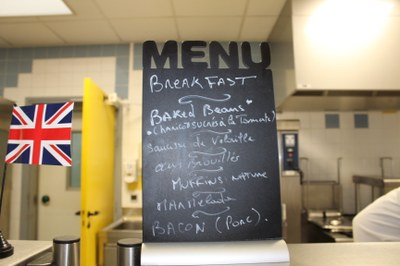 MENU
BREAKFAST
BAKED BEANS
(haricots à la Tomate)
Saucisse de Volaille
œufs brouillés
MUFFINS NATURE
MARMELADE
BACON (PORC).